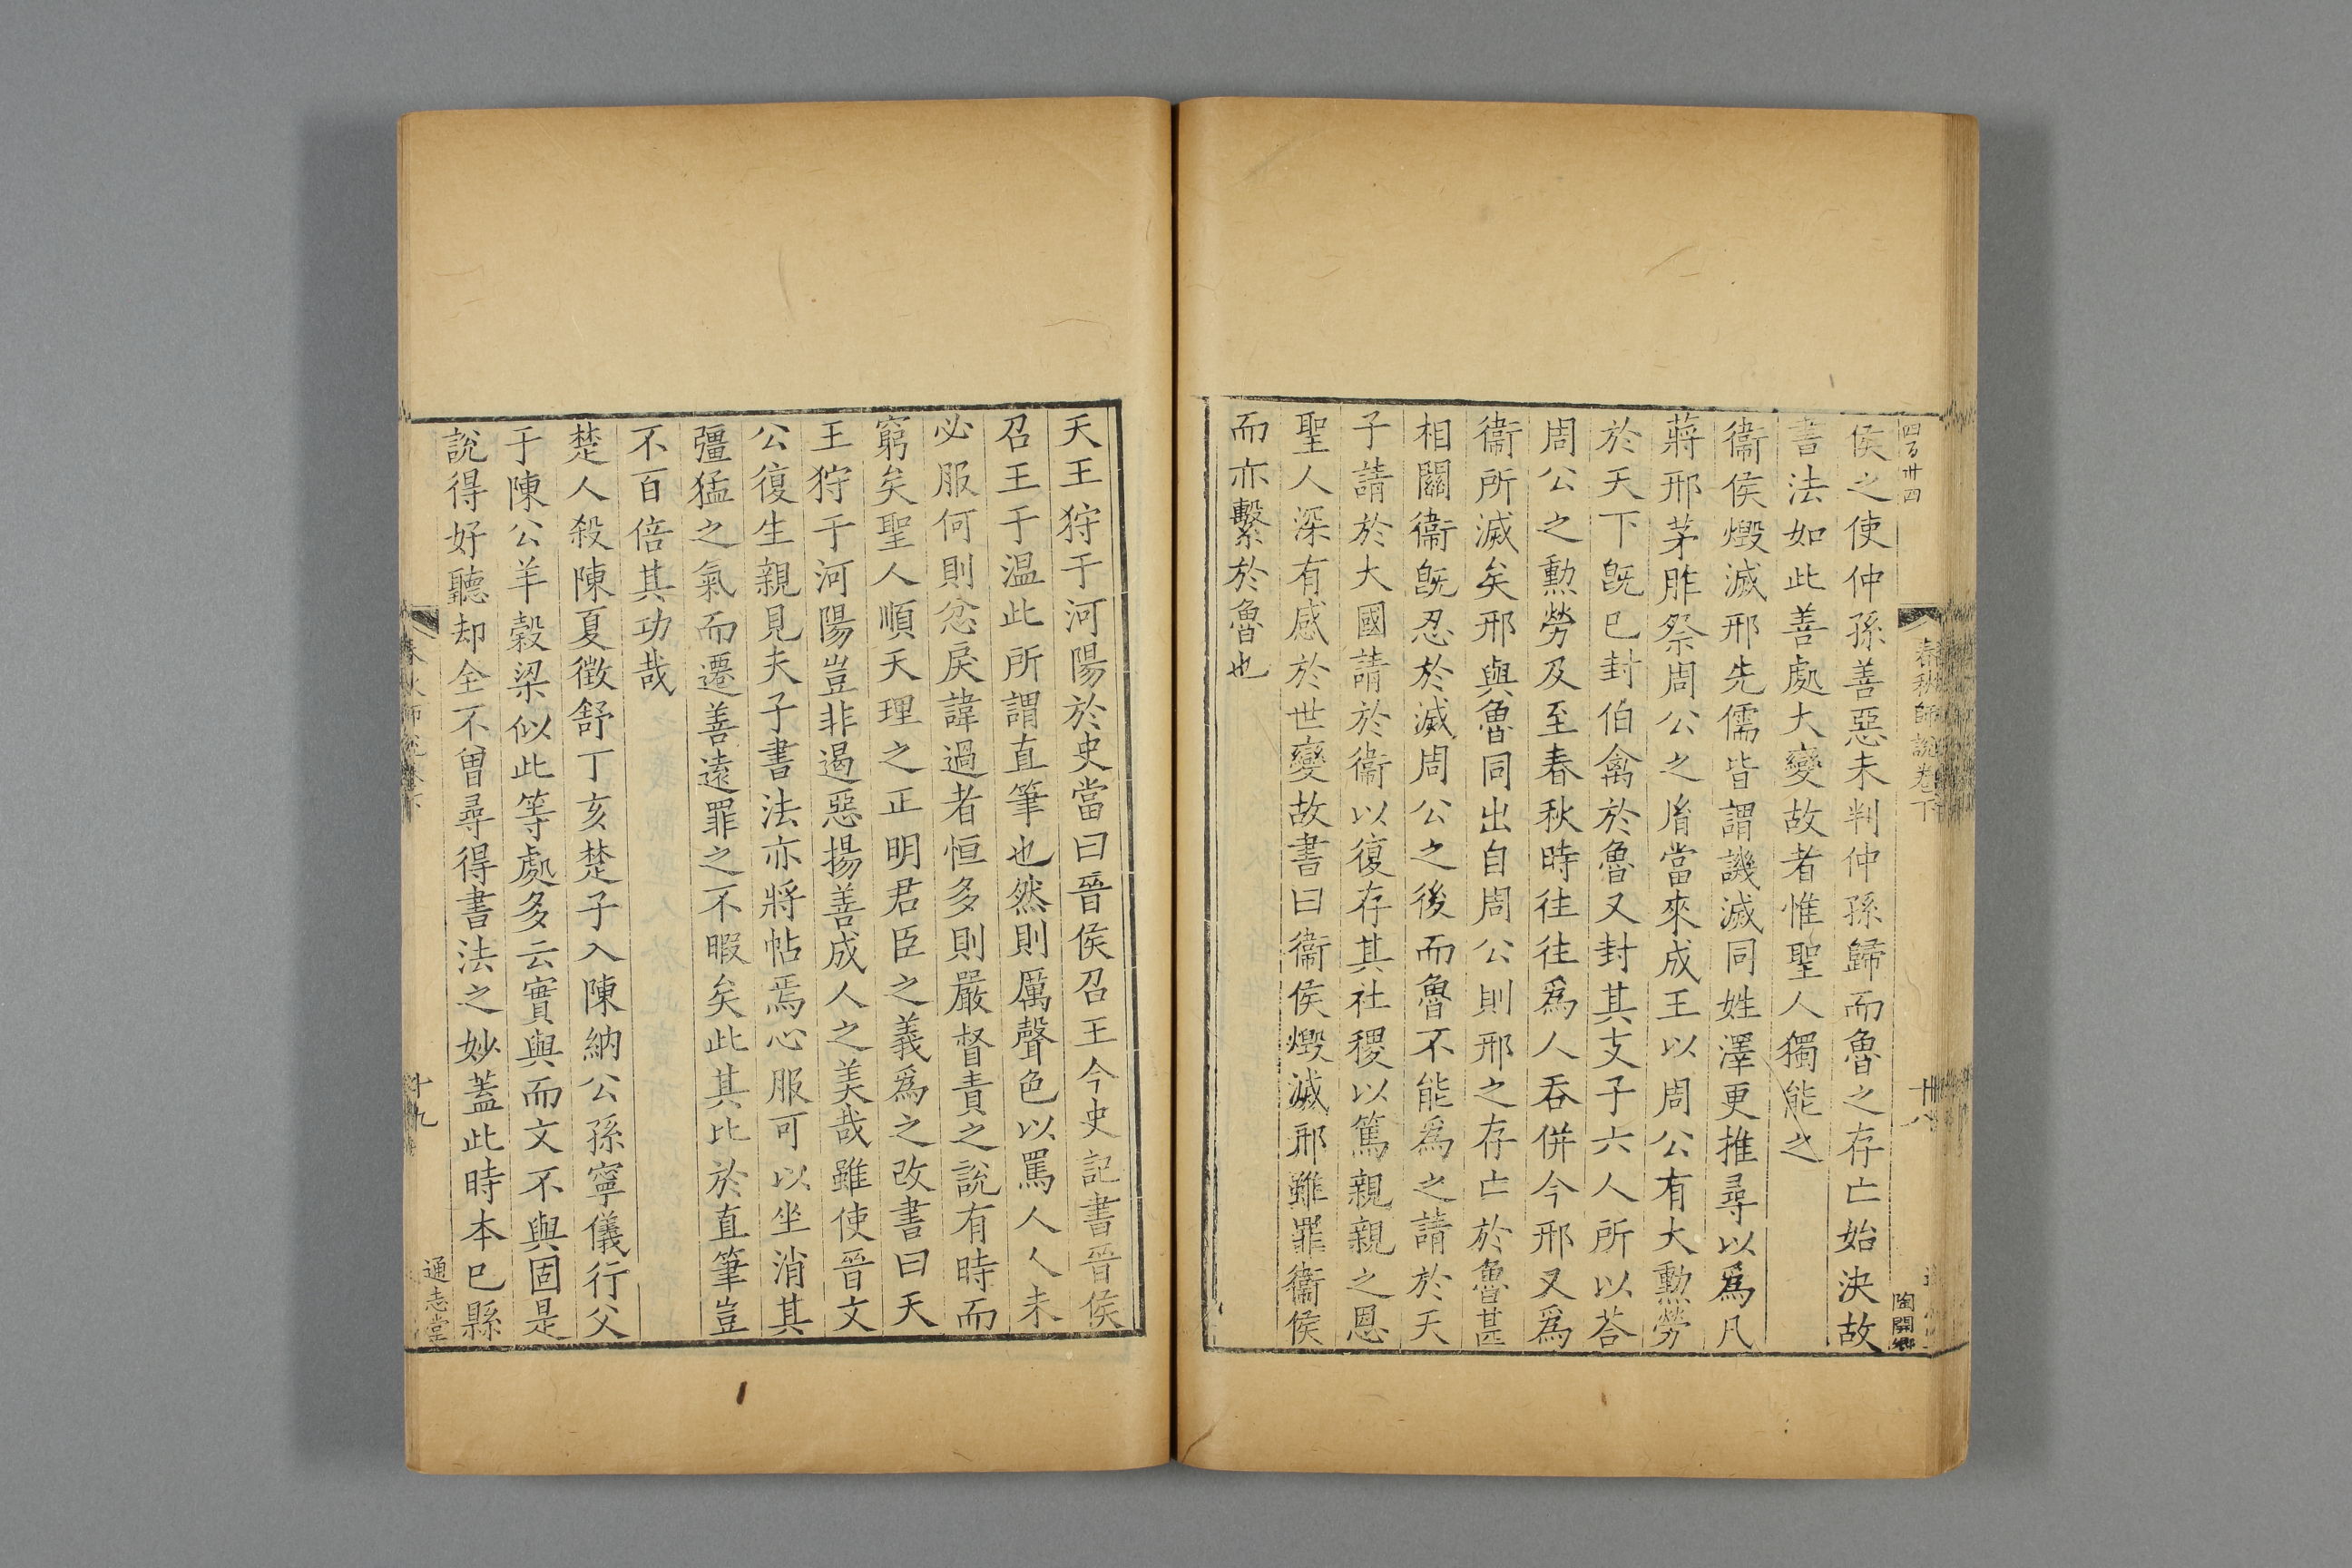 四百卅四
春秋師說卷下
十八
陶開鄉
侯之使仲孫善惡未判仲孫歸而魯之存亡始決故
書法如此善處大變故者惟聖人獨能之
衞侯燬滅邢先儒皆謂譏滅同姓澤更推尋以爲凡
蔣邢茅胙祭周公之胤當來成王以周公有大勲勞
於天下旣已封伯禽於魯又封其支子六人所以荅
周公之勲勞及至春秋時往往爲人吞併今邢又爲
衞所滅矣邢與魯同出自周公則邢之存亡於魯甚
相關衞旣忍於滅周公之後而魯不能爲之請於天
子請於大國請於衞以復存其社稷以篤親親之恩
聖人深有感於世變故書曰衞侯燬滅邢雖罪衞侯
而亦繫於魯也
天王狩于河陽於史當曰晉侯召王今史記書晉侯
召王于温此所謂直筆也然則厲聲色以罵人人未
必服何則忿戾諱過者恒多則嚴督責之說有時而
窮矣聖人順天理之正明君臣之義爲之改書曰天
王狩于河陽豈非遏惡揚善成人之美哉雖使晉文
公復生親見夫子書法亦將帖焉心服可以坐消其
彊猛之氣而遷善遠罪之不暇矣此其比於直筆豈
不百倍其功哉
楚人殺陳夏徵舒丁亥楚子入陳納公孫寧儀行父
于陳公羊穀梁似此等處多云實與而文不與固是
說得好聽却全不曽尋得書法之妙蓋此時本已縣
十九
通志堂